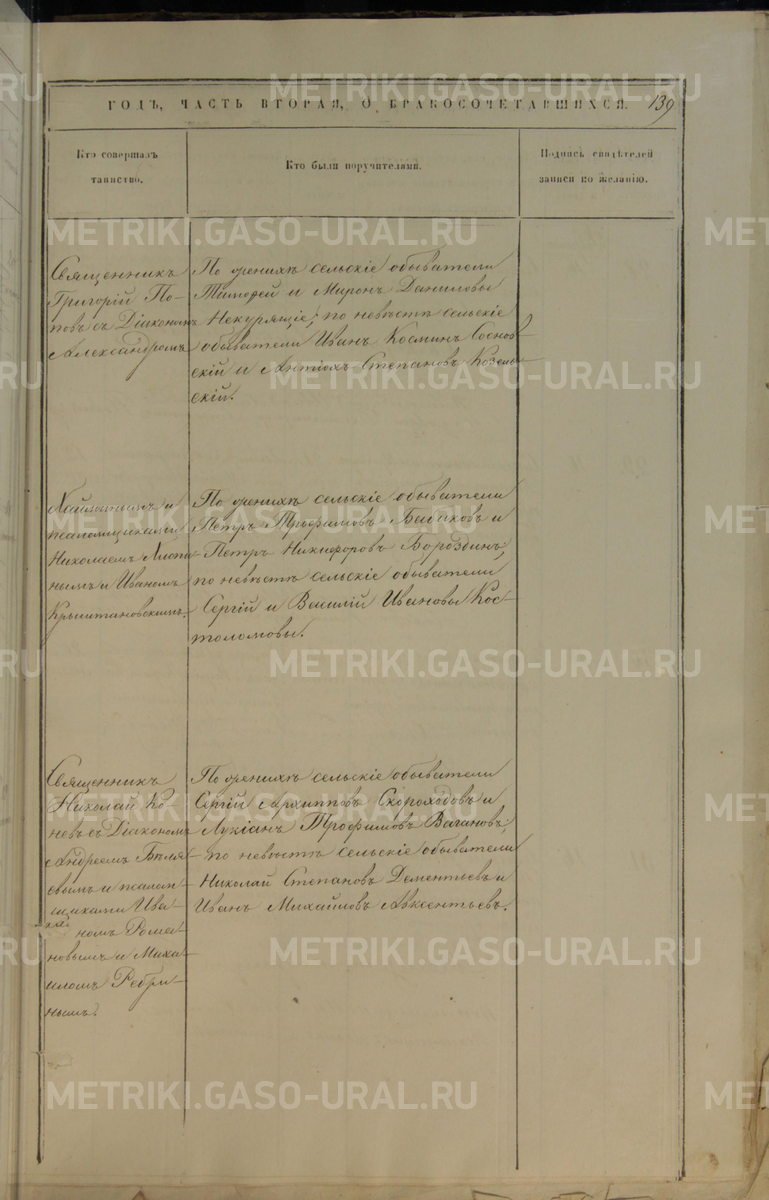 ГОДЪ, ЧАСТЬ ВТОРАЯ, О БРАКОСОЧЕТАВШИХСЯ. 139
Кто совершалъ
таинство.
Кто были поручителями.
Подпись свидѣтелей
записи по желанію.
Священникъ
Григорій По-
повъ съ Діакономъ
Александромъ
По женихѣ сельскіе обыватели
Тимофей и Миронъ Даниловы
Некурящіе; по невѣстѣ сельскіе
обыватели Иванъ Косминъ Соснов-
скій и Антіохъ Степановъ Козель-
скій.
и
псаломщиками
Николаемъ
нымъ и Иваномъ
По женихѣ сельскіе обыватели
Петръ Трофимовъ и
Петръ Никифоровъ Бороздинъ,
по невѣстѣ сельскіе обыватели
Сергій и Василій Ивановы Кос-
толомовы.
Священникъ
Николай Ко-
невъ съ Діакономъ
Андреемъ Бѣля-
евымъ и псалом-
щиками Ива-
номъ Рома-
новымъ и Миха-
иломъ
нымъ.
По женихѣ сельскіе обыватели
Сергій Архипповъ Скороходовъ и
Лукіанъ Трофимовъ Вагановъ,
по невѣстѣ сельскіе обыватели
Николай Степановъ Дементьевъ и
Иванъ Михайловъ Авксентьевъ.
METRIKI.GASO-URAL.RU